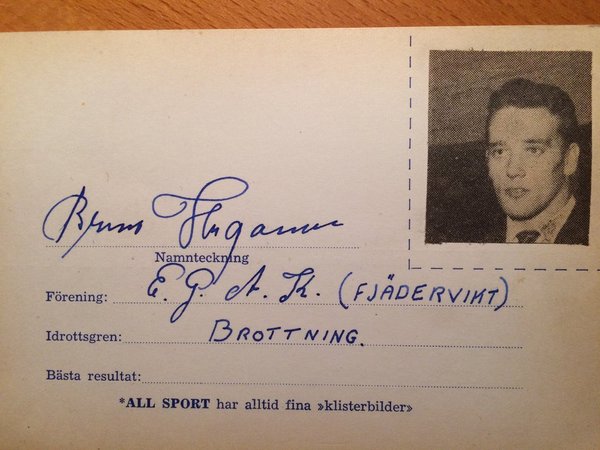 Bruno
Namnteckning
Förening: E. G. A. K. (FJÄDERVIKT)
Idrottsgren: BROTTNING.
Bästa resultat:
*ALL SPORT har alltid fina »klisterbilder»